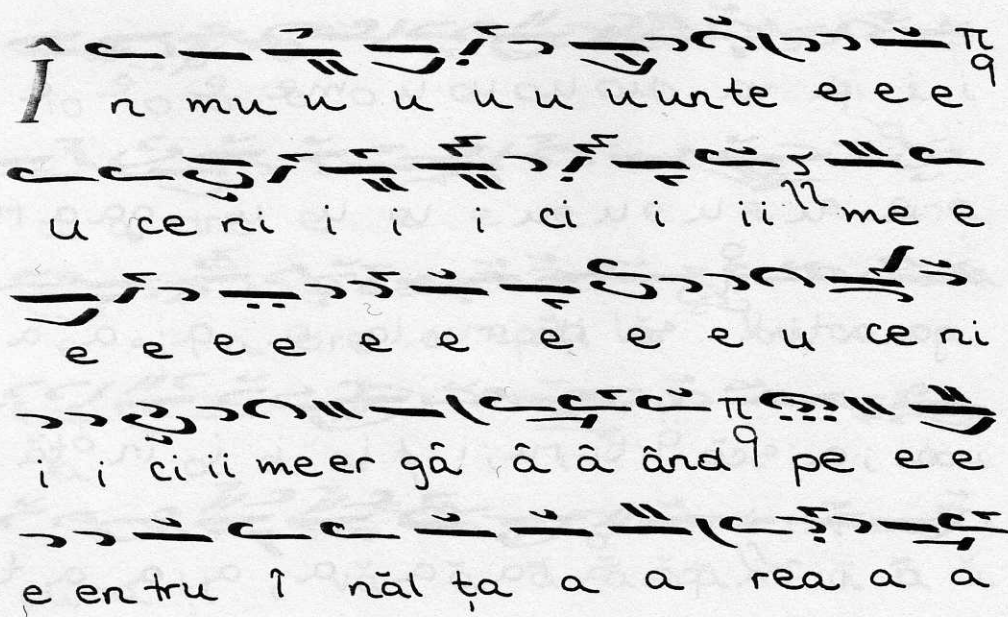 În mu u u u u u unte e e e
u ce ni i i i ci i ii me e
e e e e e e e e e u ce ni
i i ci ii me er gâ â â ând pe e e
e en tru î năl ța a a rea a a